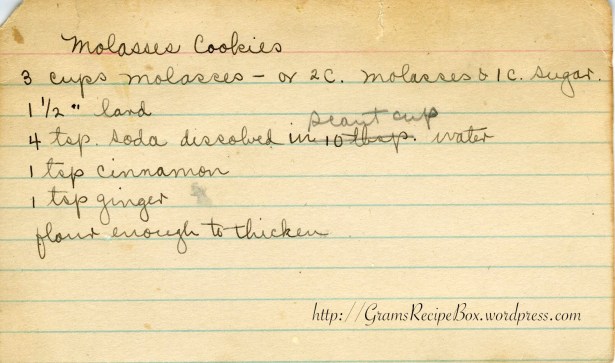 Molasses Cookies
3 cups molasses - or 2C. molasses & 1C. sugar.
1 1/2 " lard
scant cup
4 tsp. soda dissolved in 10 tbsp. water
1 tsp cinnamon
1 tsp ginger
flour enough to thicken
http://GramsRecipeBox.wordpress.com